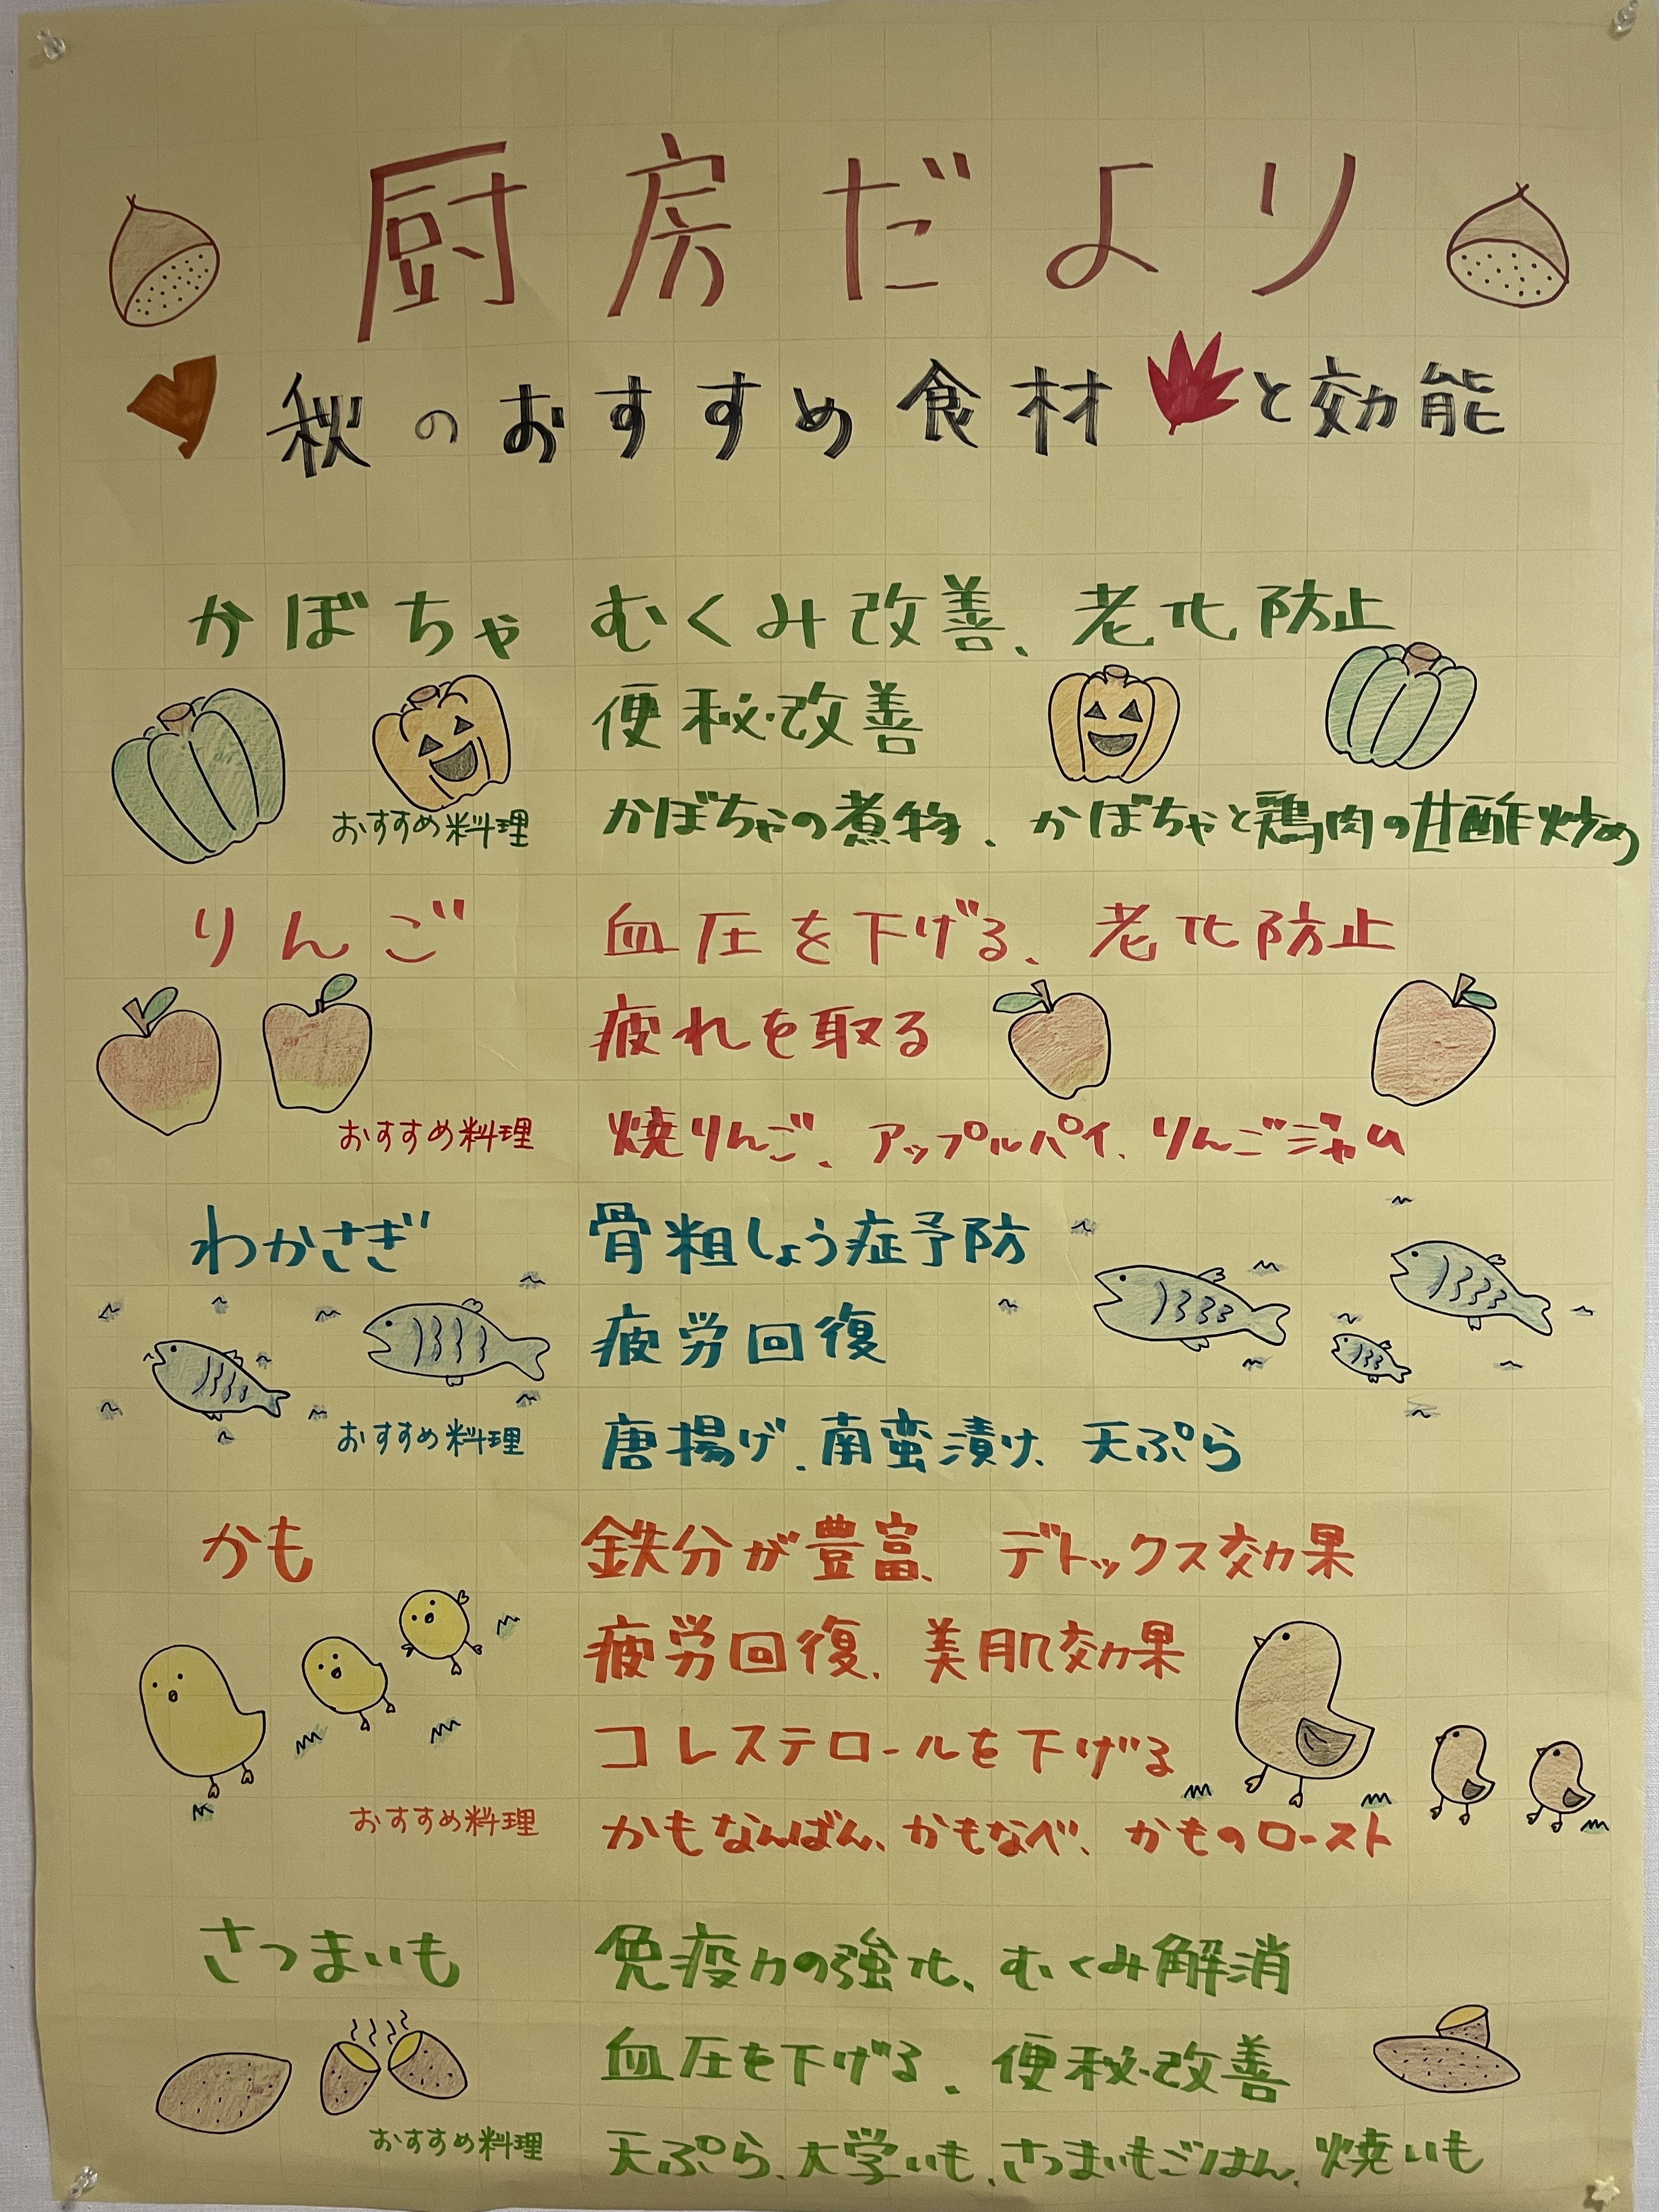 厨房だより
秋のおすすめ食材と効能
かぼちゃ むくみ改善、老化防止
便秘改善
おすすめ料理 かぼちゃの煮物、かぼちゃと鶏肉の甘酢炒め
りんご 血圧を下げる、老化防止
疲れを取る
おすすめ料理 焼りんご、アップルパイ、りんごジャム
わかさぎ 骨粗しょう症予防
疲労回復
おすすめ料理 唐揚げ、南蛮漬け、天ぷら
かも 鉄分が豊富、デトックス効果
疲労回復、美肌効果
コレステロールを下げる
おすすめ料理 かもなんばん、かもなべ、かものロースト
さつまいも 免疫力の強化、むくみ解消
血圧を下げる、便秘改善
おすすめ料理 天ぷら、大学いも、さつまいもごはん、焼いも